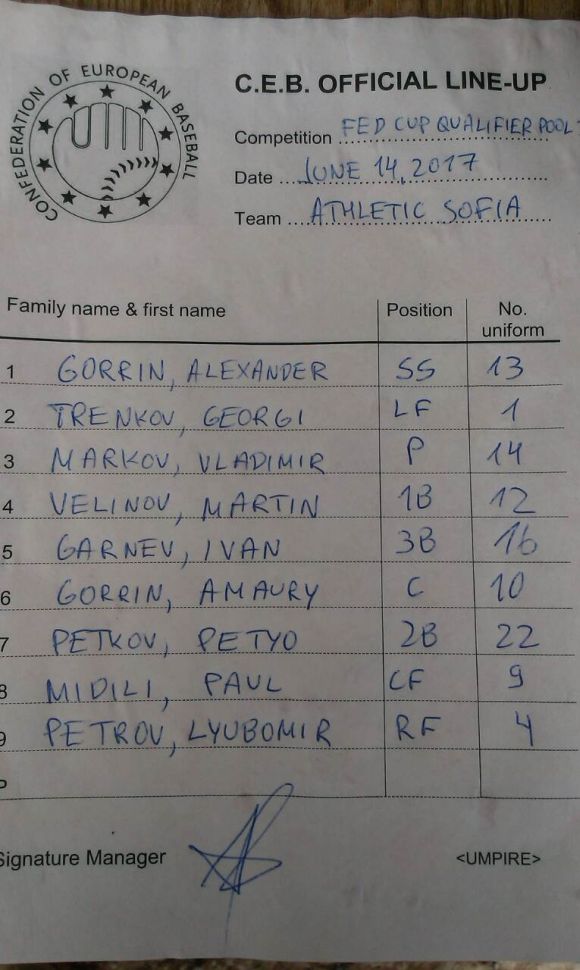 CONFEDERATION OF EUROPEAN BASEBALL
C.E.B. OFFICIAL LINE-UP
Competition FED CUP QUALIFIER POOL
Date JUNE 14, 2017
Team ATHLETIC SOFIA
Family name & first name Position No. uniform
1 GORRIN, ALEXANDER SS 13
2 TRENKOV, GEORGI LF 1
3 MARKOV, VLADIMIR P 14
4 VELINOV, MARTIN 1B 12
5 GARNEV, IVAN 3B 16
6 GORRIN, AMAURY C 10
7 PETKOV, PETYO 2B 22
8 MIDILI, PAUL CF 9
9 PETROV, LYUBOMIR RF 4
P
Signature Manager <UMPIRE>